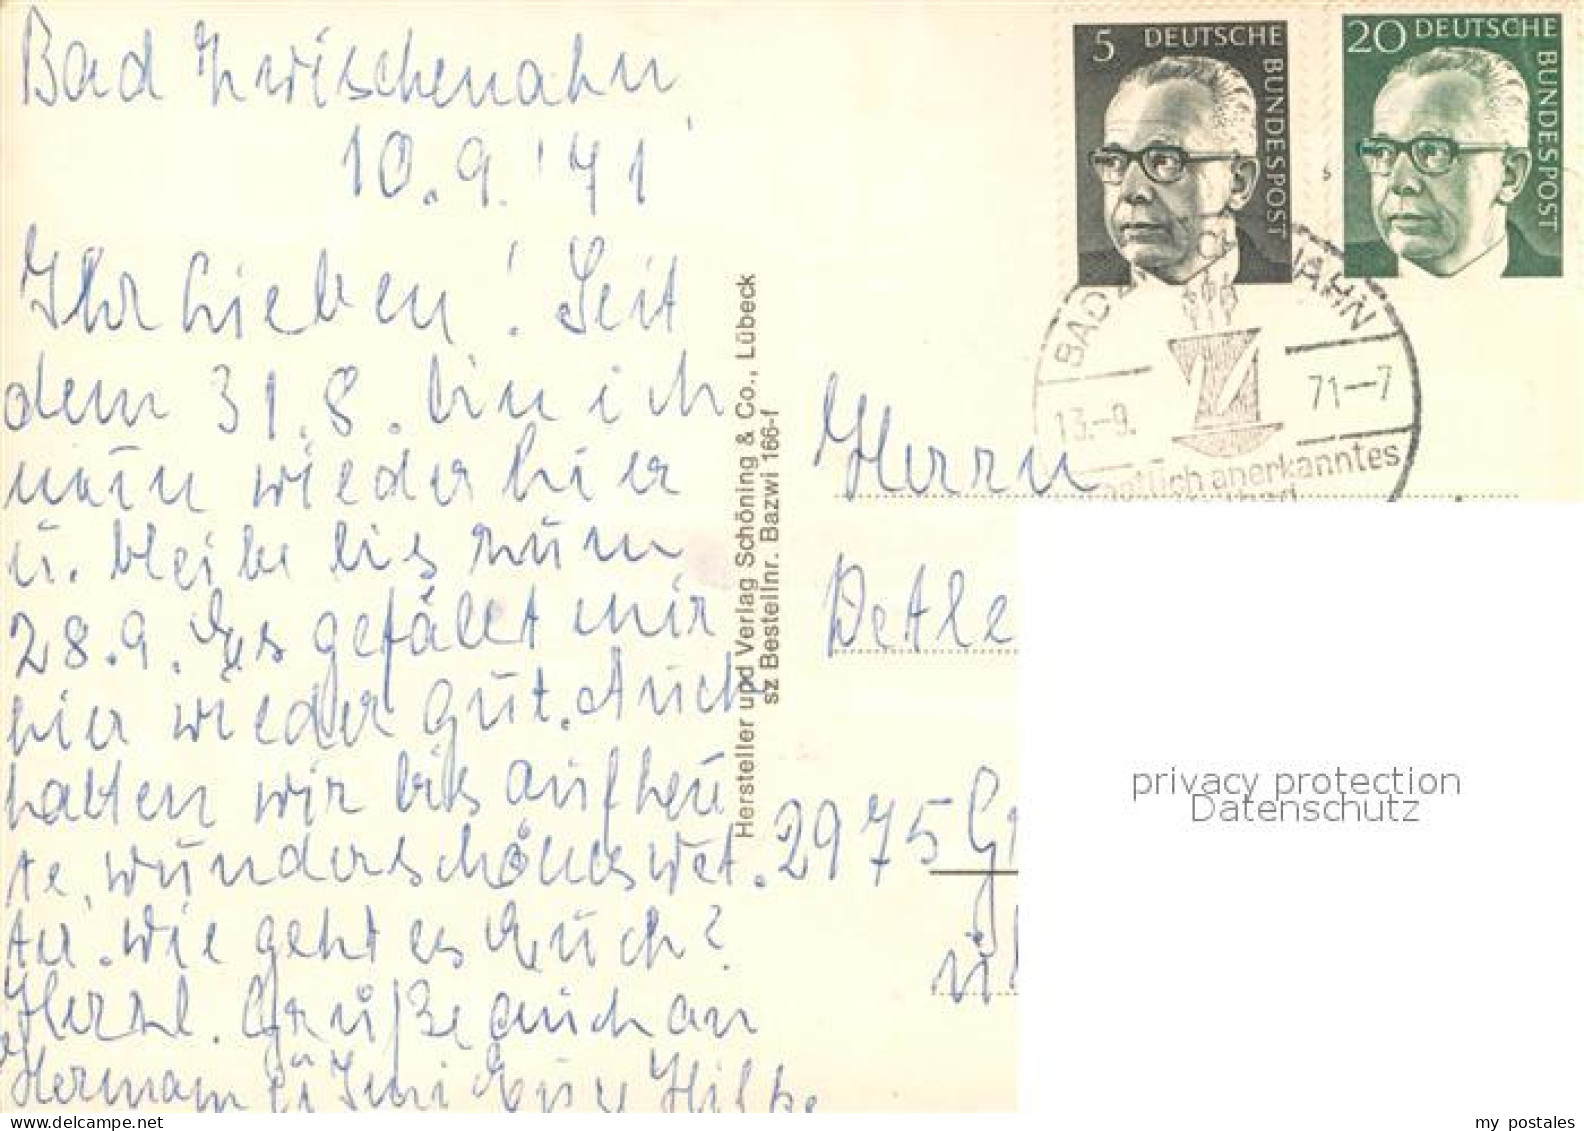 Bad Zwischenahn,
10.9.'71
Ihr Lieben! Seit
dem 31.8. bin ich
nun wieder hier
u. bleibe bis zum
28.9. Es gefällt mir
hier wieder gut. Auch
hatten wir bis auf heu
te, wunderschönes Wet.
ter. Wie geht es Euch?
Herzl. Grüße auch an
Hermann u. Imi Eure Hilke
Hersteller und Verlag Schöning & Co., Lübeck
sz Bestellnr. Bazwi 166-f
5 DEUTSCHE BUNDESPOST
20 DEUTSCHE BUNDESPOST
BAD ZWISCHENAHN
13.-9. 71-7
staatlich anerkanntes
Herrn
Detle
2975 G
privacy protection
Datenschutz
my postales